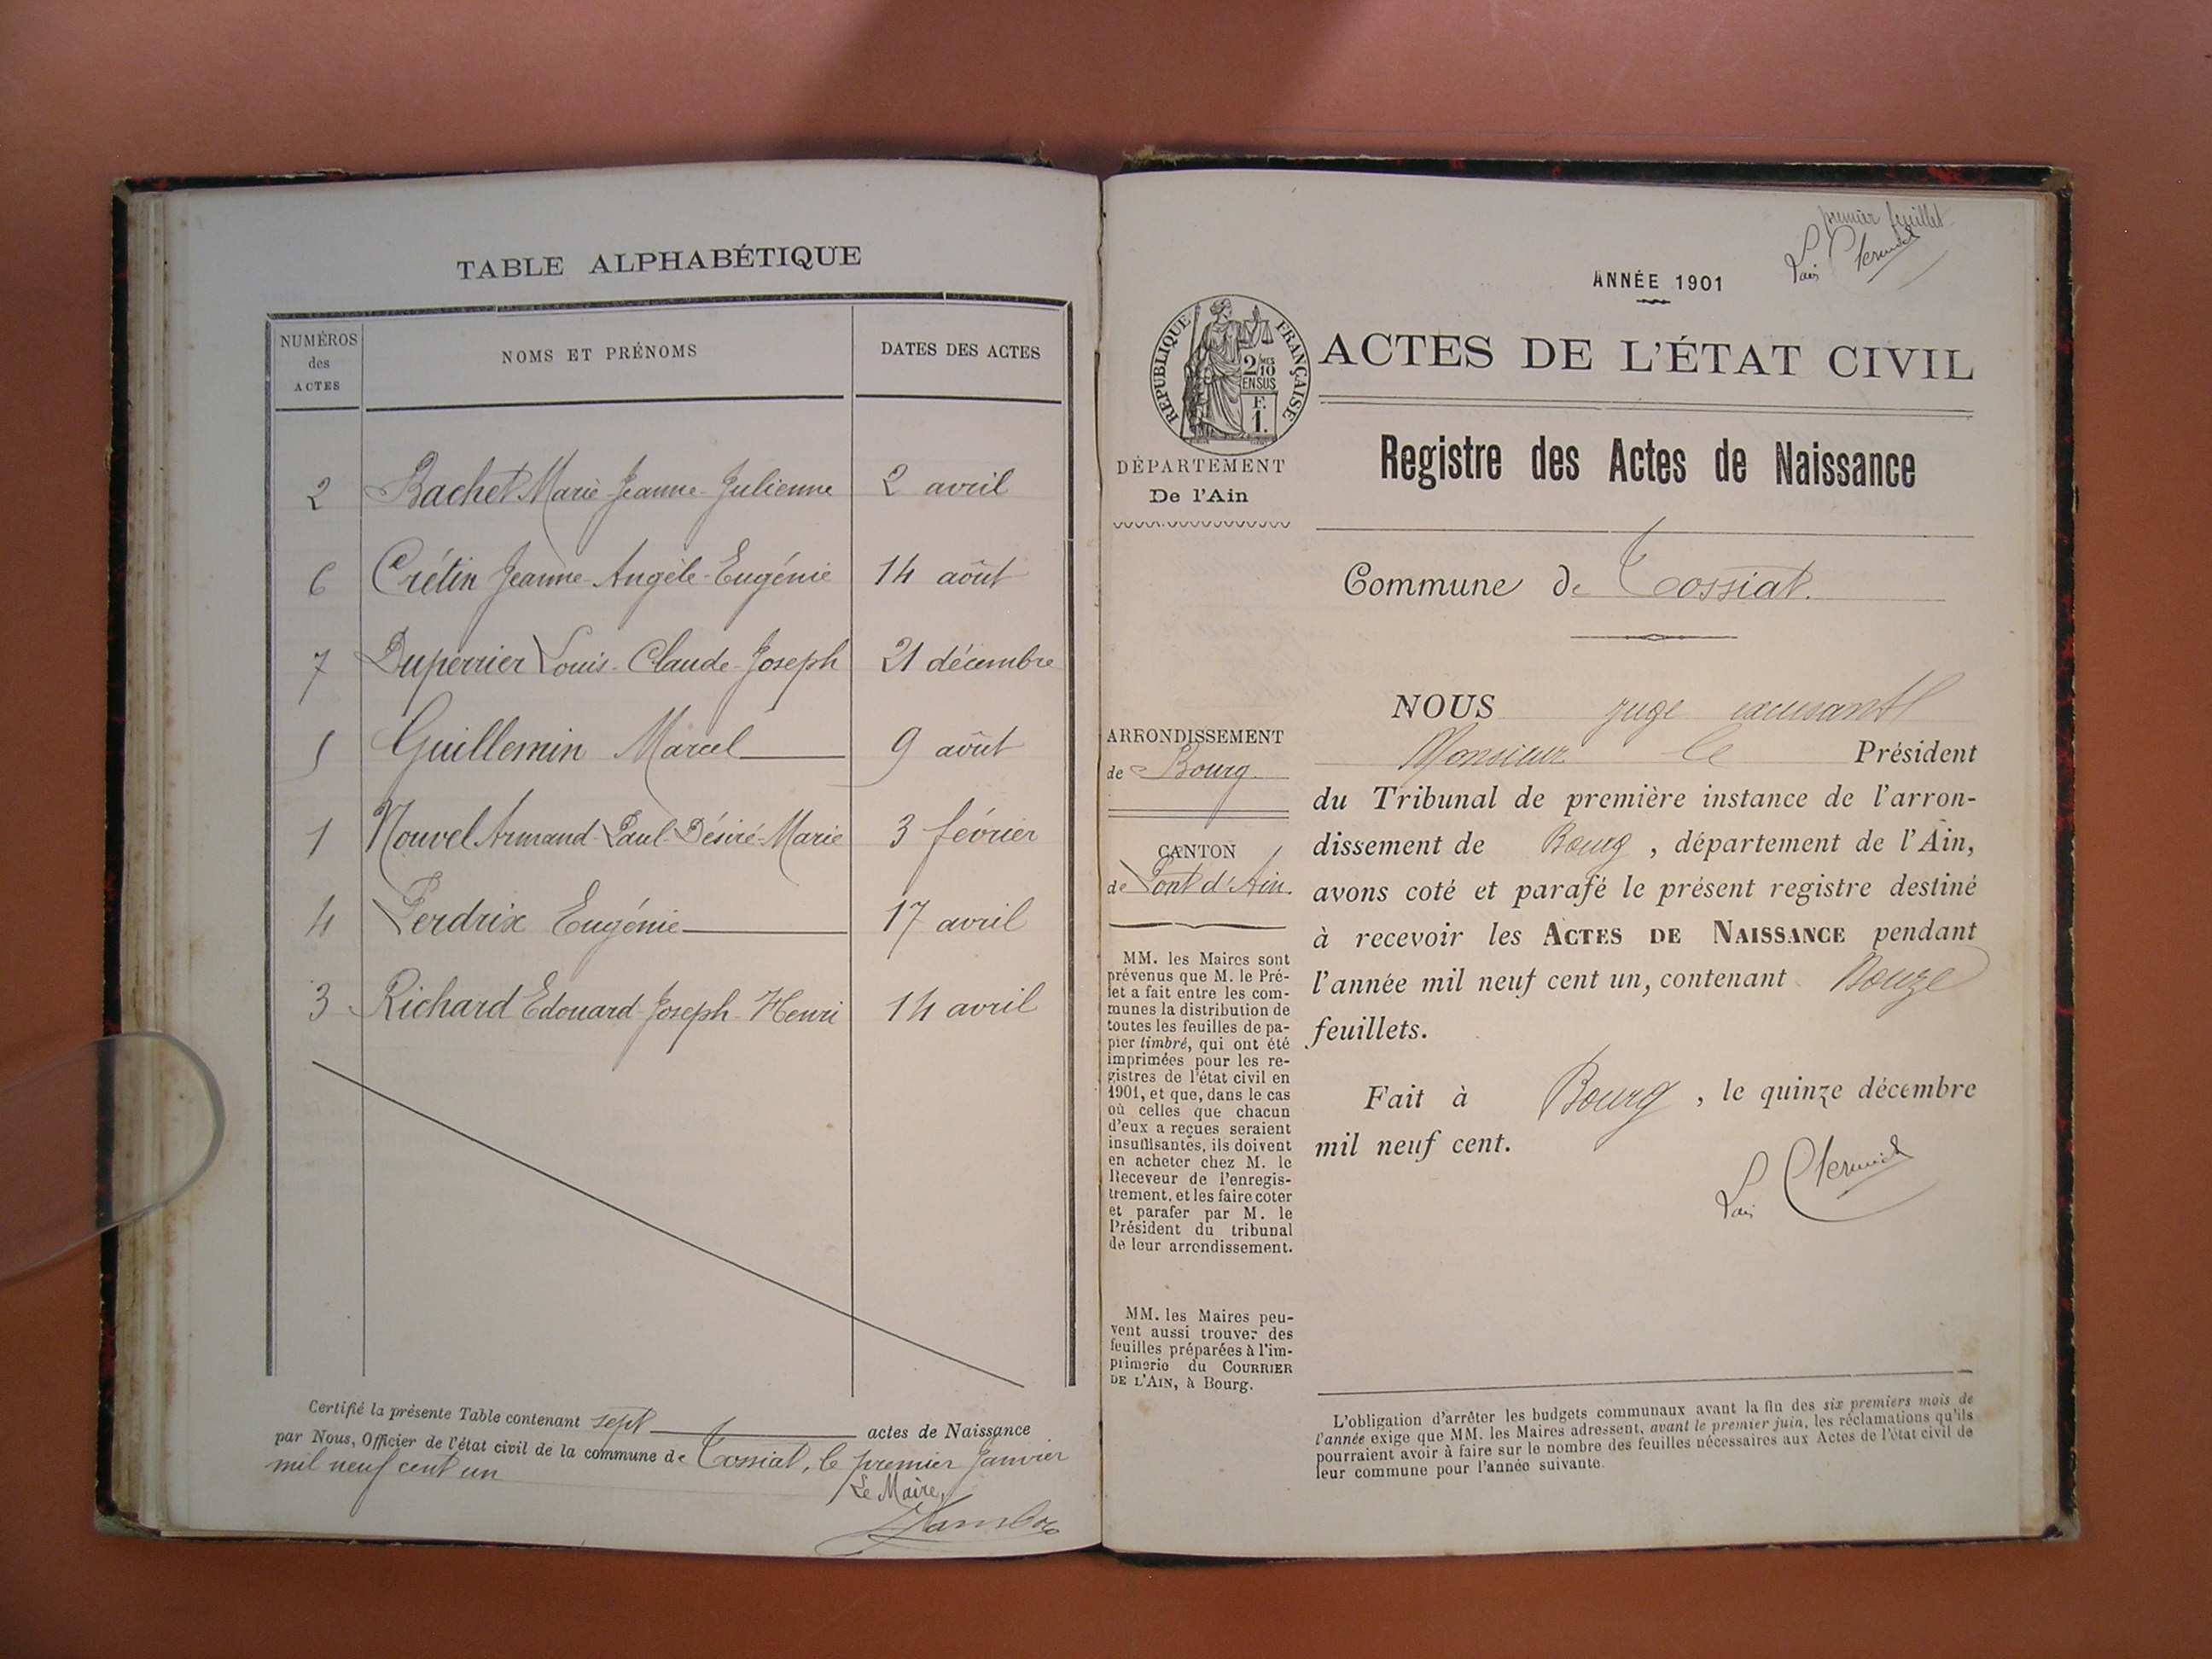 TABLE ALPHABÉTIQUE
NUMÉROS des ACTES
NOMS ET PRÉNOMS
DATES DES ACTES
2 Bachet Marie-Jeanne-Julienne 2 avril
6 Crétin Jeanne-Angèle-Eugénie 14 août
7 Duperrier Louis-Claude-Joseph 21 décembre
5 Guillemin Marcel 9 août
1 Nouvel Armand-Paul-Désiré-Marie 3 février
4 Perdrix Eugénie 17 avril
3 Richard Edouard-Joseph-Henri 14 avril
Certifié la présente Table contenant sept actes de Naissance
par Nous, Officier de l'état civil de la commune de Tossiat, le premier Janvier
mil neuf cent un
Le Maire,
premier feuillet
ANNÉE 1901
RÉPUBLIQUE FRANÇAISE
2/10 MES
EN SUS
F.
1.
ACTES DE L'ÉTAT CIVIL
DÉPARTEMENT
De l'Ain
Registre des Actes de Naissance
Commune de Tossiat.
ARRONDISSEMENT
de Bourg
CANTON
de Pont d'Ain.
MM. les Maires sont
prévenus que M. le Pré-
fet a fait entre les com-
munes la distribution de
toutes les feuilles de pa-
pier timbré, qui ont été
imprimées pour les re-
gistres de l'état civil en
1901, et que, dans le cas
où celles que chacun
d'eux a reçues seraient
insuffisantes, ils doivent
en acheter chez M. le
Receveur de l'enregis-
trement, et les faire coter
et parafer par M. le
Président du tribunal
de leur arrondissement.
MM. les Maires peu-
vent aussi trouver des
feuilles préparées à l'im-
primerie du COURRIER
DE L'AIN, à Bourg.
NOUS juge
Monsieur le Président
du Tribunal de première instance de l'arron-
dissement de Bourg, département de l'Ain,
avons coté et parafé le présent registre destiné
à recevoir les ACTES DE NAISSANCE pendant
l'année mil neuf cent un, contenant Douze
feuillets.
Fait à Bourg, le quinze décembre
mil neuf cent.
L'obligation d'arrêter les budgets communaux avant la fin des six premiers mois de
l'année exige que MM. les Maires adressent, avant le premier juin, les réclamations qu'ils
pourraient avoir à faire sur le nombre des feuilles nécessaires aux Actes de l'état civil de
leur commune pour l'année suivante.